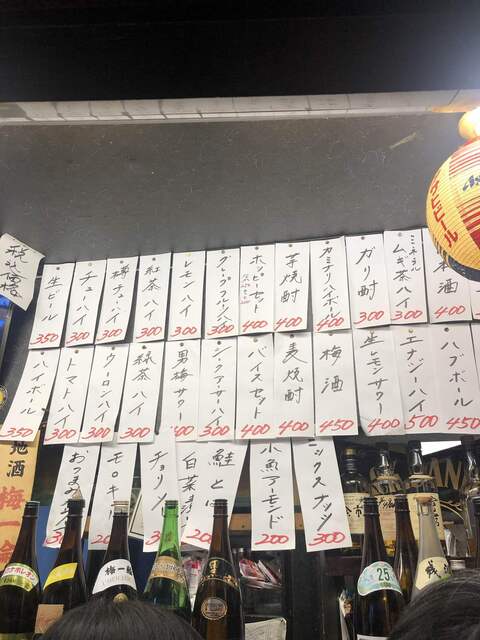 税込価格
生ビール 350
チューハイ 300
梅チューハイ 300
紅茶ハイ 300
レモンハイ 300
グレープフルーツハイ 300
ホッピーセット 400
芋焼酎 400
カミナリハイボール 400
ガリ酎 300
ミネラルムギ茶ハイ 300
本酒 400
ハイボール 350
トマトハイ 300
ウーロンハイ 300
緑茶ハイ 300
男梅サワー 400
シークァーサーハイ 300
バイスセット 400
麦焼酎 400
梅酒 450
生レモンサワー 400
エナジーハイ 500
ハブボール 450
おつまみ
モロキュー
チョリソー 3
白菜 20
鮭とば
小魚アーモンド 200
ミックスナッツ 300
地酒
梅一
梅一
25